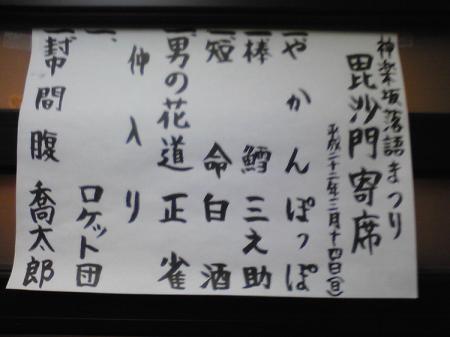 神楽坂落語まつり
毘沙門寄席
平成二十二年二月十四日(日)
一、やかん ぽっぽ
一、棒鱈 三之助
一、短命 白酒
一、男の花道 正雀
仲入り
一、 ロケット団
一、幇間腹 喬太郎